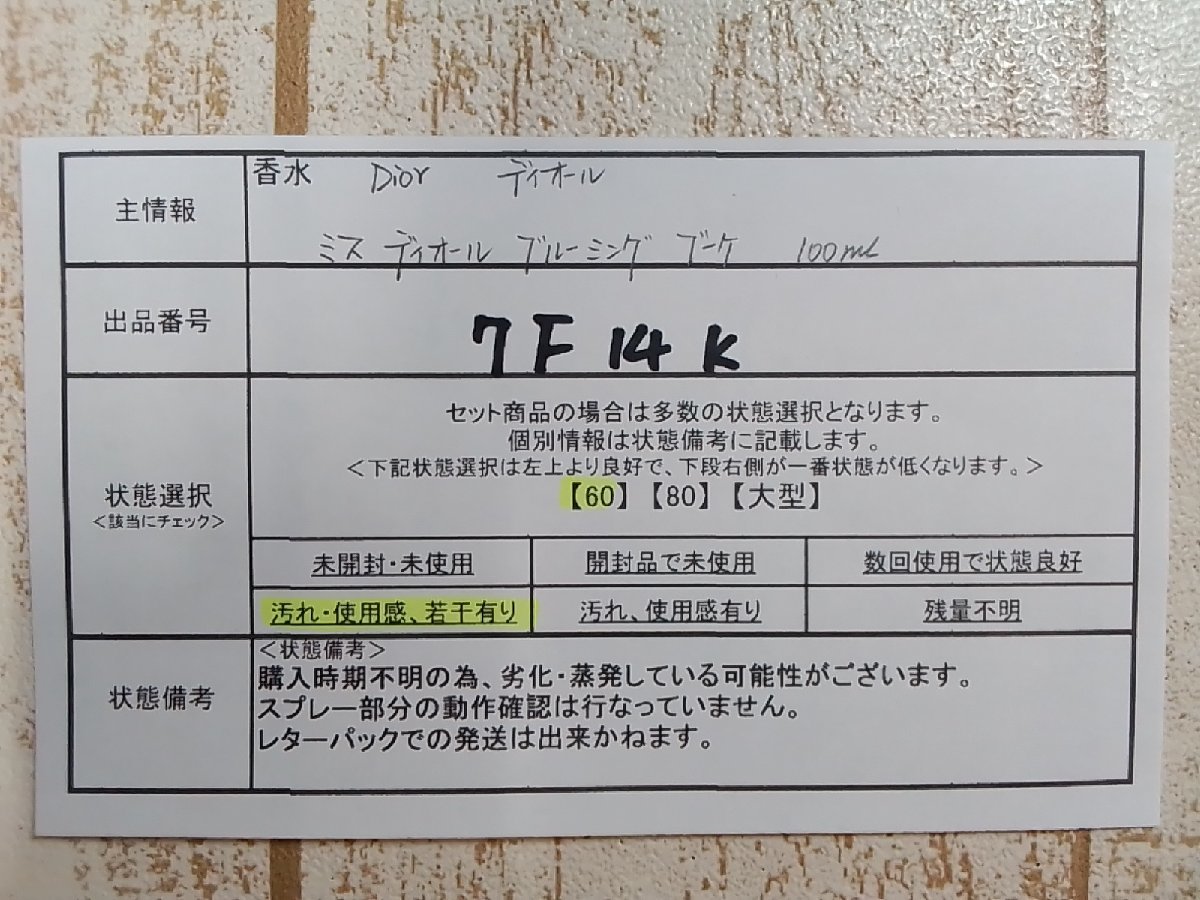 主情報
香水 Dior ディオール
ミス ディオール ブルーミング ブーケ 100ml
出品番号
7F14K
状態選択
＜該当にチェック＞
セット商品の場合は多数の状態選択となります。
個別情報は状態備考に記載します。
＜下記状態選択は左上より良好で、下段右側が一番状態が低くなります。＞
【60】【80】【大型】
未開封・未使用 開封品で未使用 数回使用で状態良好
汚れ・使用感、若干有り 汚れ、使用感有り 残量不明
状態備考
＜状態備考＞
購入時期不明の為、劣化・蒸発している可能性がございます。
スプレー部分の動作確認は行なっていません。
レターパックでの発送は出来かねます。